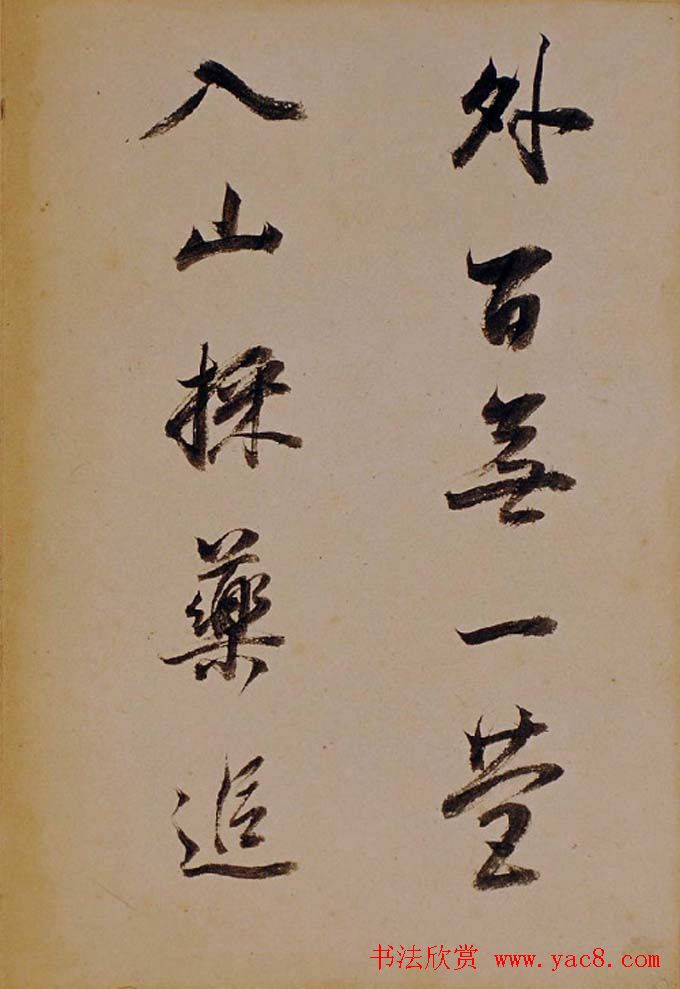 外百無一營
入山採藥追
书法欣赏 www.yac8.com